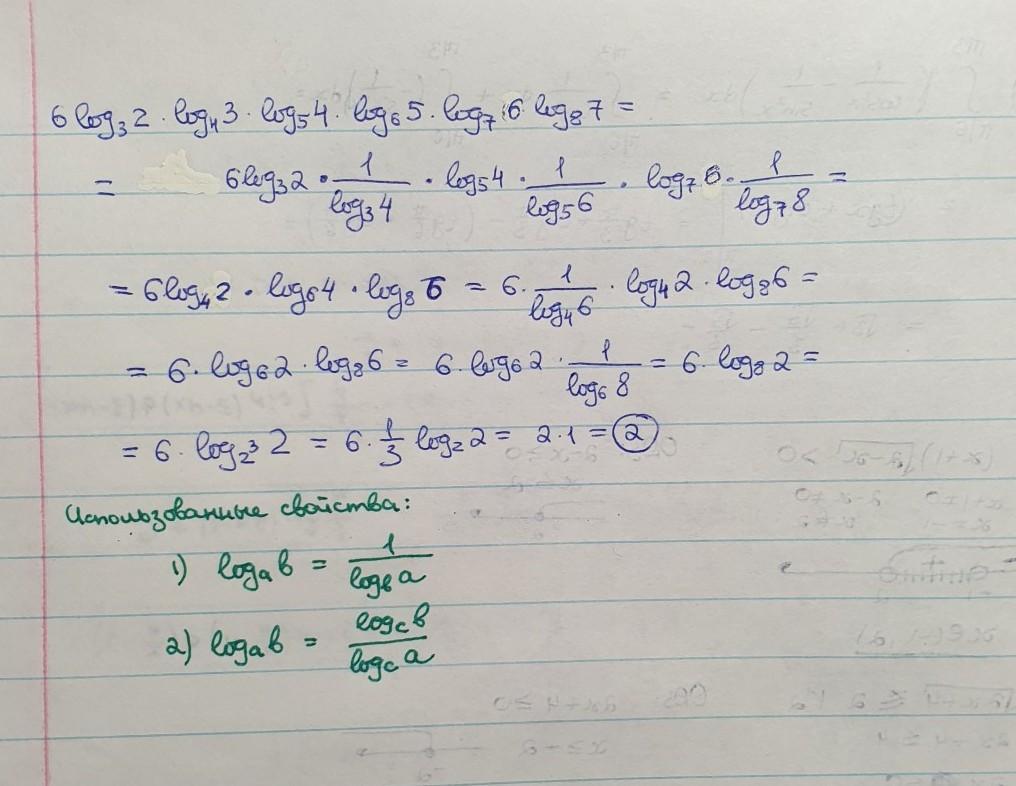 6 log₃2 · log₄3 · log₅4 · log₆5 · log₇6 log₈7 =
= 6log₃2 · 1/log₃4 · log₅4 · 1/log₅6 · log₇6 · 1/log₇8 =
= 6log₄2 · log₆4 · log₈6 = 6 · 1/log₄6 · log₄2 · log₈6 =
= 6 · log₆2 · log₈6 = 6 · log₆2 · 1/log₆8 = 6 · log₈2 =
= 6 · log₂³2 = 6 · 1/3 log₂2 = 2 · 1 = 2
Использованные свойства:
1) logₐb = 1/log_b a
2) logₐb = log_c b/log_c a